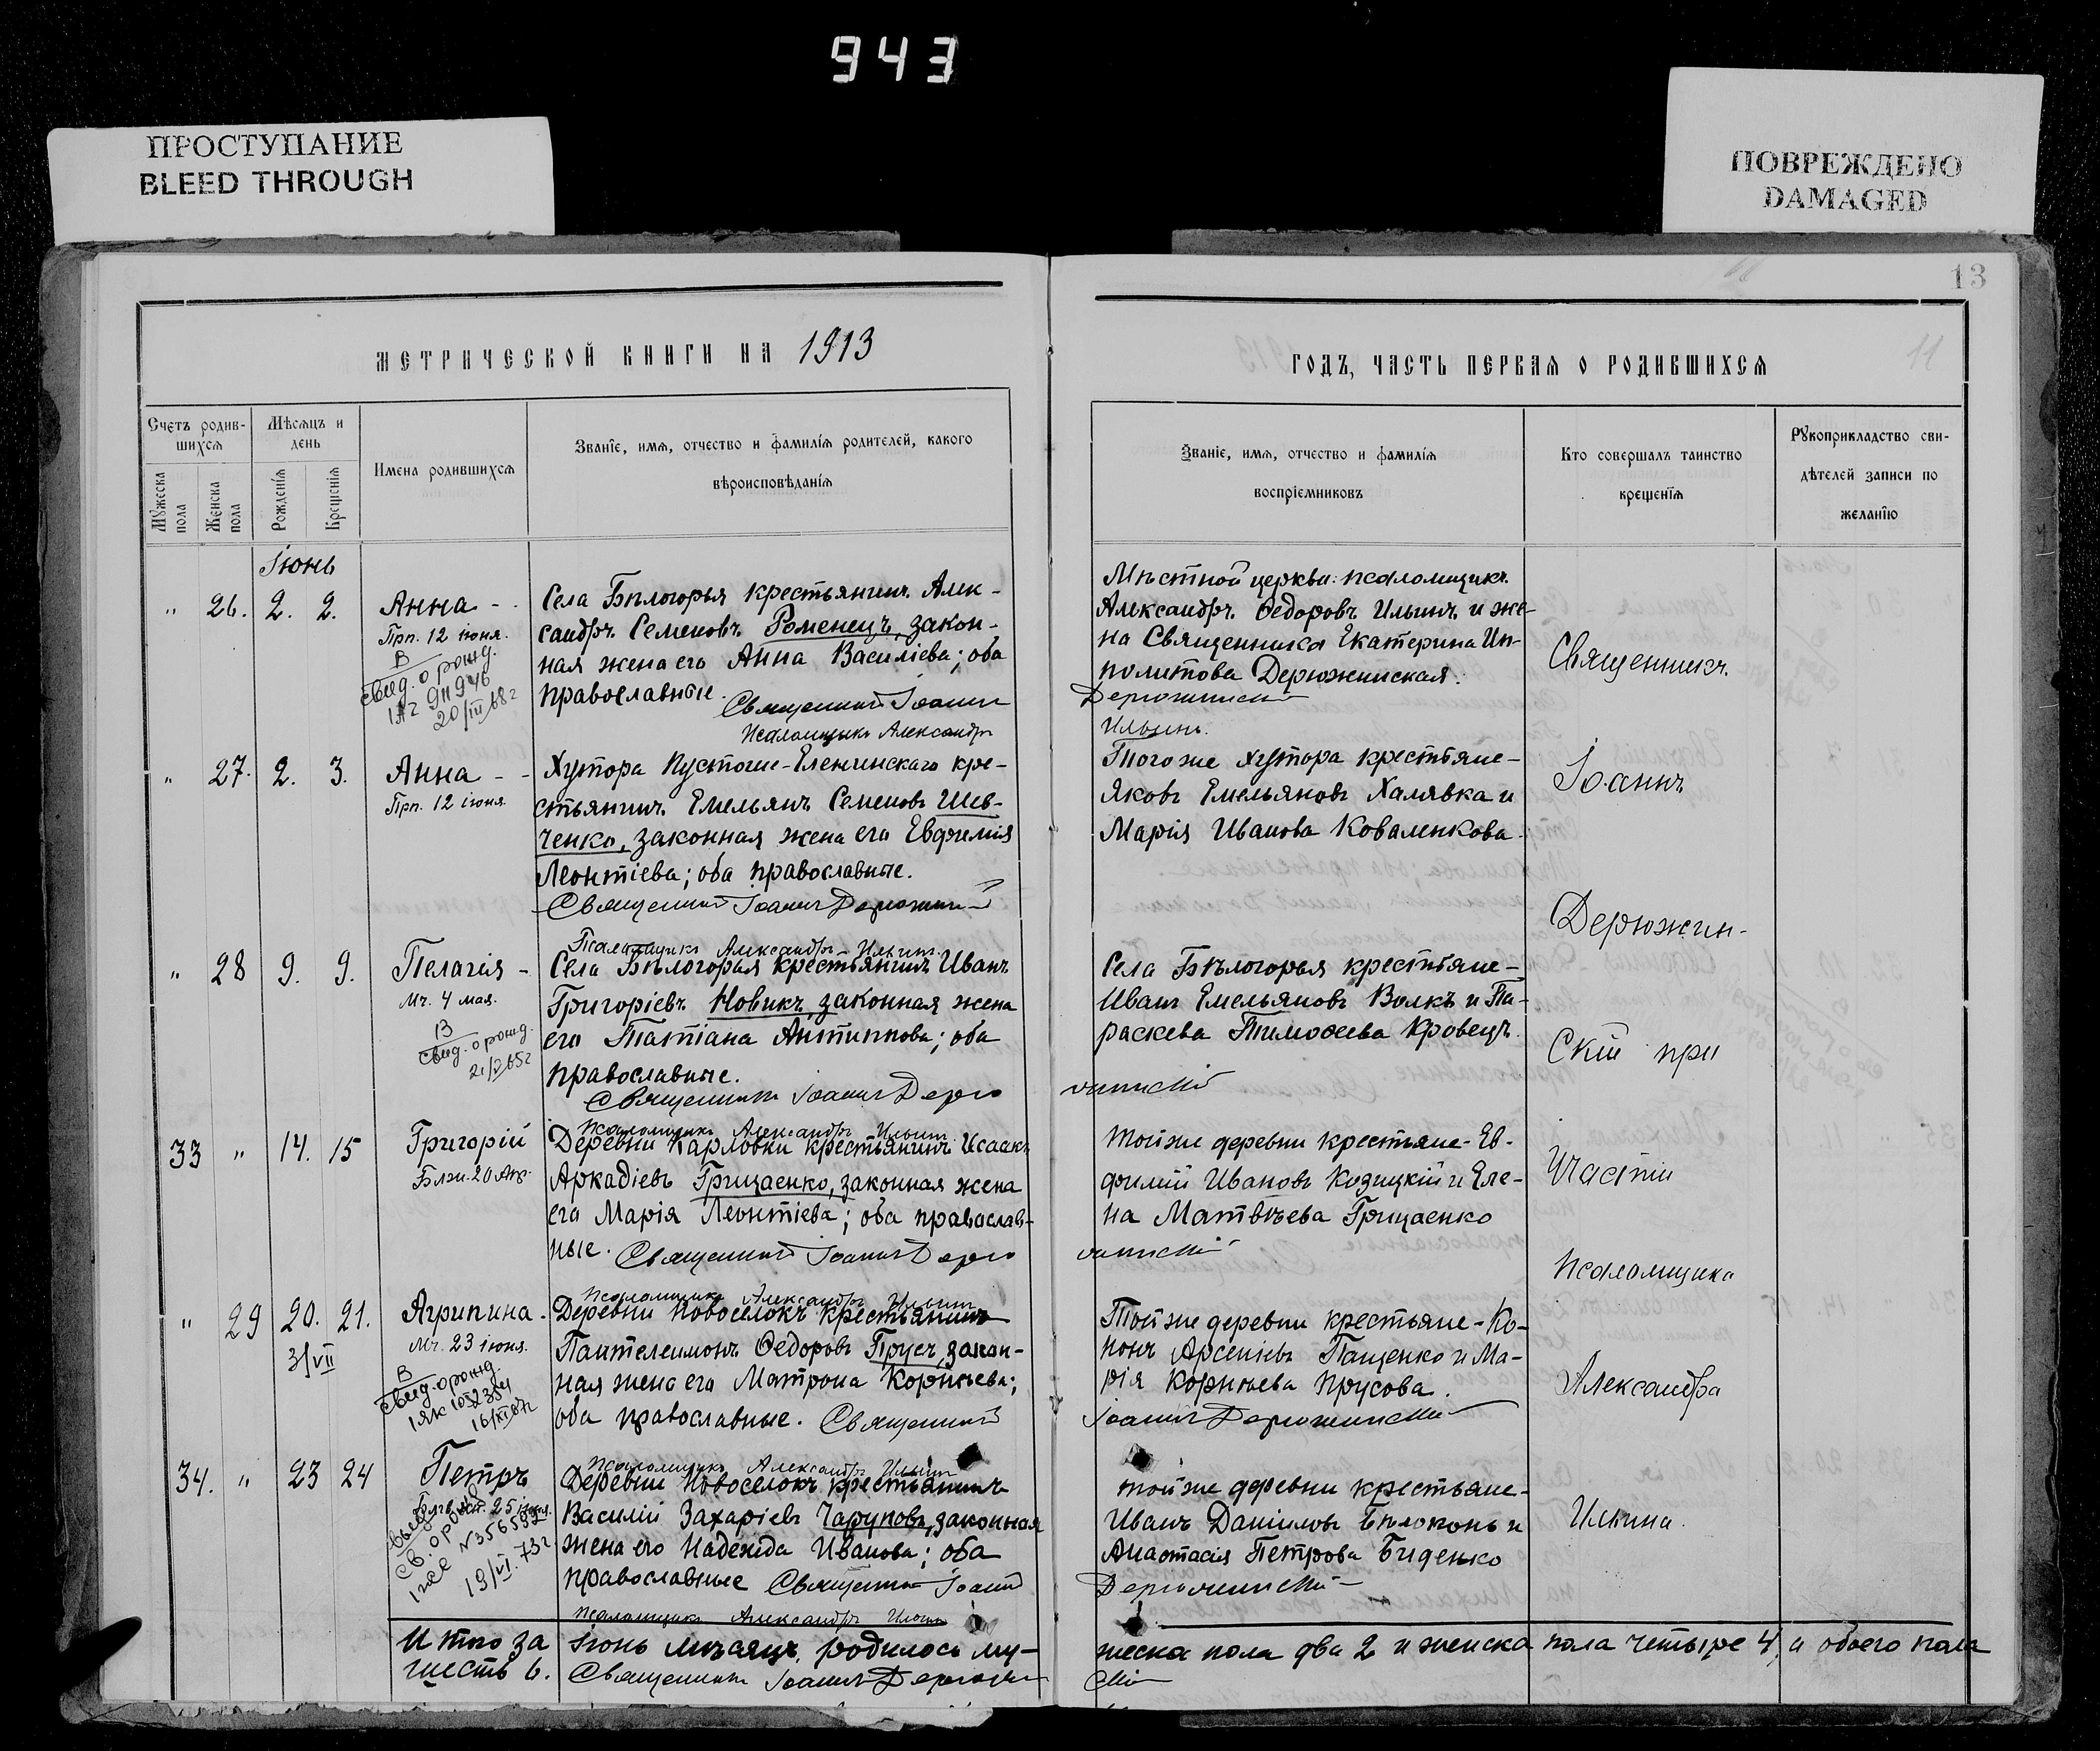 943
ПРОСТУПАНИЕ
BLEED THROUGH
ПОВРЕЖДЕНО
DAMAGED
13
11
МЕТРИЧЕСКОЙ КНИГИ НА 1913
ГОДЪ, ЧАСТЬ ПЕРВАЯ О РОДИВШИХСЯ
Счетъ родив-
шихся
Мѣсяцъ и
день
Мужеска
пола
Женска
пола
Рожденія
Крещенія
Имена родившихся
Званіе, имя, отчество и фамилія родителей, какого
вѣроисповѣданія
Званіе, имя, отчество и фамилія
воспріемниковъ
Кто совершалъ таинство
крещенія
Рукоприкладство сви-
дѣтелей записи по
желанію
Іюнь
" 26. 2. 2.
Анна -
Прп. 12 іюня.
В
свид. о рожд.
20/III 68 г
Села Бѣлогорья крестьянинъ Алек-
сандръ Семеновъ Роменецъ, закон-
ная жена его Анна Василіева; оба
православные.
Священникъ Іоаннъ
Псаломщикъ Александръ
Мѣстной церкви: псаломщикъ
Александръ Ѳедоровъ Ильинъ и же-
на Священника Екатерина Ип-
политова Дерюжинская.
Дерюжинскій
Ильинъ.
" 27. 2. 3.
Анна - -
Прп. 12 іюня.
Хутора Пустоше-Еленинскаго кре-
стьянинъ Емельянъ Семеновъ Шев-
ченко, законная жена его Евфимія
Леонтіева; оба православные.
Священникъ Іоаннъ Дерюжинскій
Псаломщикъ Александръ Ильинъ
Того же хутора крестьяне -
Яковъ Емельяновъ Халявка и
Марія Иванова Коваленкова.
" 28 9. 9.
Пелагія -
Мч. 4 мая.
В
свид. о рожд.
21/V 65 г
Села Бѣлогорья крестьянинъ Иванъ
Григоріевъ Новикъ, законная жена
его Татіана Антиппова; оба
православные.
Священникъ Іоаннъ Дерю
Псаломщикъ Александръ Ильинъ
Села Бѣлогорья крестьяне -
Иванъ Емельяновъ Волкъ и Па-
раскева Тимоѳеева Кровецъ.
жинскій
33 " 14. 15
Григорій
Деревни Карловки крестьянинъ Исаакъ
Аркадіевъ Грицаенко, законная жена
его Марія Леонтіева; оба православ-
ные. Священникъ Іоаннъ Дерю
Псаломщикъ Александръ Ильинъ
Той же деревни крестьяне - Ев-
фимій Ивановъ Козицкій и Еле-
на Матвѣева Грицаенко
жинскій
" 29 20. 21.
3/VII
Агрипина -
Мч. 23 іюня.
В
свид. о рожд.
Деревни Новоселокъ крестьянинъ
Пантелеимонъ Ѳедоровъ Прусъ, закон-
ная жена его Матрона Корнѣева;
оба православные. Священникъ
Псаломщикъ Александръ Ильинъ
Той же деревни крестьяне - Ко-
нонъ Арсеніевъ Пащенко и Ма-
рія Корнѣева Прусова.
Іоаннъ Дерюжинскій
34. " 23 24
Петръ
19/VI. 73 г
Деревни Новоселокъ крестьянинъ
Василій Захаріевъ Чаруповъ, законная
жена его Надежда Иванова; оба
православные Священникъ Іоаннъ
Псаломщикъ Александръ Ильинъ
Той же деревни крестьяне -
Иванъ Даніиловъ Бѣлоконь и
Анастасія Петрова Биденко
Дерюжинскій
Священникъ
Іоаннъ
Дерюжин-
скій при
участіи
псаломщика
Александра
Ильина.
Итого за Іюнь мѣсяцъ родилось му-
жеска пола два 2 и женска пола четыре 4, а обоего пола
шесть 6. Священникъ Іоаннъ Дерюжин
скій